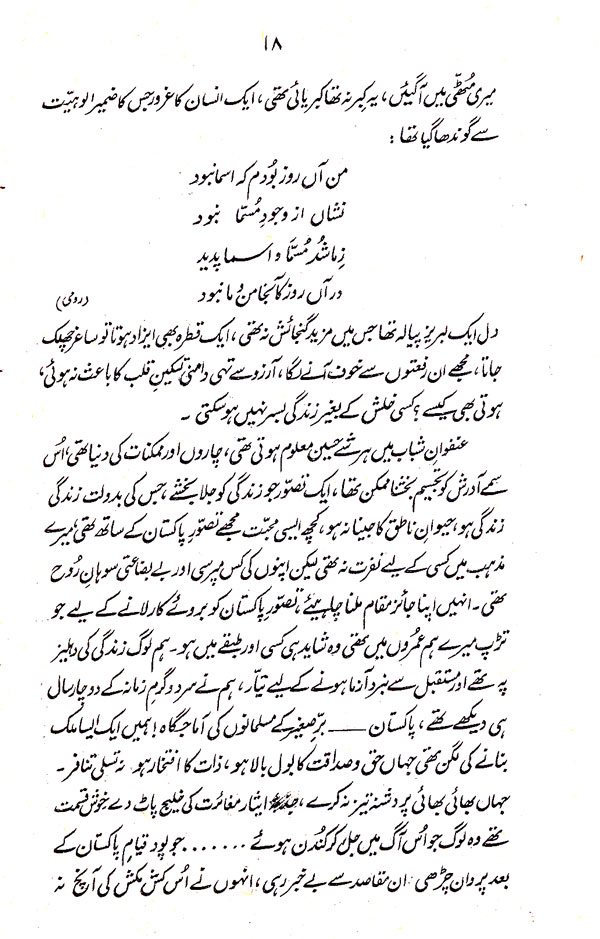 ۱۸
میری مُٹھی میں آگئیں ، یہ کِبر نہ تھا کبریائی تھی ، ایک انسان کا غرور جس کا ضمیر الوہیّت
سے گوندھا گیا تھا :
من آں روز بُودم کہ اسما نبود
نشاں از وجودِ مُسمّا نبود
زِما شُد مُسمّا و اسما پدید
در آں روز کآنجا من و ما نبود (رومی)
دل ایک لبریز پیالہ تھا جس میں مزید گنجائش نہ تھی ، ایک قطرہ بھی ایزاد ہوتا تو ساغر چھلک
جاتا ، مجھے ان رفعتوں سے خوف آنے لگا ، آرزو سے تہی دامنی تسکینِ قلب کا باعث نہ ہوئی ،
ہوتی بھی کیسے ؟ کسی خلش کے بغیر زندگی بسر نہیں ہو سکتی ۔
عنفوانِ شباب میں ہر شے حسین معلوم ہوتی تھی ، چاروں اور ممکنات کی دنیا تھی ، اُس
سمے آدرش کو تجسیم بخشنا ممکن تھا ، ایک تصوّر جو زندگی کو جلا بخشے ، جس کی بدولت زندگی
زندگی ہو ، حیوانِ ناطق کا جینا نہ ہو ، کچھ ایسی محبّت مجھے تصوّرِ پاکستان کے ساتھ تھی ، میرے
مذہب میں کسی کے لیے نفرت نہ تھی لیکن اپنوں کی کس مپرسی اور بے بضاعتی سوہانِ رُوح
تھی ۔ انہیں اپنا جائز مقام ملنا چاہیئے ، تصوّرِ پاکستان کو بروئے کار لانے کے لیے جو
تڑپ میرے ہم عمروں میں تھی وہ شاید ہی کسی اور طبقے میں ہو ۔ ہم لوگ زندگی کی دہلیز
پہ تھے اور مستقبل سے نبرد آزما ہونے کے لیے تیّار ، ہم نے سرد و گرمِ زمانہ کے دو چار سال
ہی دیکھے تھے ، پاکستان ــــــ برّصغیر کے مسلمانوں کی آماجگاہ ! ہمیں ایک ایسا ملک
بنانے کی لگن تھی جہاں حق و صداقت کا بول بالا ہو ، ذات کا افتخار ہو نہ نسلی تنافر ۔
جہاں بھائی بھائی پر دشنہ تیز نہ کرے ، جذبۂ ایثار مغائرت کی خلیج پاٹ دے ۔ خوش قسمت
تھے وہ لوگ جو اُس آگ میں جل کر کُندن ہوئے ....... جو پود قیامِ پاکستان کے
بعد پروان چڑھی ان مقاصد سے بے خبر رہی ، انہوں نے اُس کش مکش کی آنچ نہ